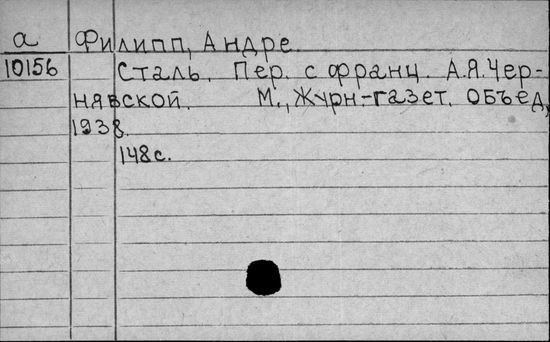 а Филипп, Андре.
10156 Сталь. Пер. с франц. А.Я.Чер-
нявской. М., Журн-газет. объед,
1938.
148с.